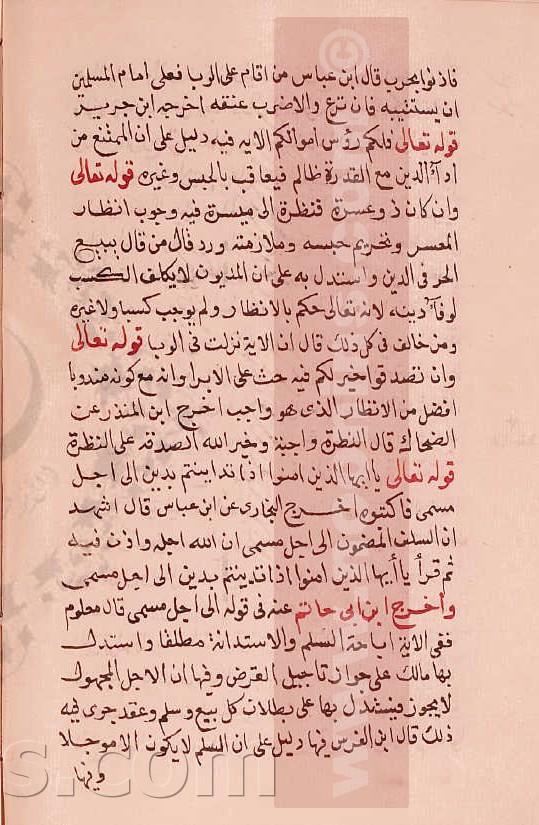 فاذنوا بحرب قال ابن عباس من اقام على الربا فعلى امام المسلمين
ان يستتيبه فان نزع والا ضرب عنقه اخرجه ابن جرير
قوله تعالى فلكم رؤس اموالكم الاية فيه دليل على ان الممتنع من
ادآء الدين مع القدرة ظالم فيعاقب بالحبس وغيره قوله تعالى
وان كان ذو عسرة فنظرة الى ميسرة فيه وجوب انظار
المعسر وتحريم حبسه وملازمته ورد قال من قال ببيع
الحر فى الدين واستدل به على ان المديون لا يكلف الكسب
لوفآء دينه لانه تعالى حكم بالانظار ولم يوجب كسبا ولا غيره
ومن خالف فى كل ذلك قال ان الاية نزلت فى الربا قوله تعالى
وان تصدقوا خير لكم فيه حث على الابرا وانه مع كونه مندوبا
افضل من الانظار الذى هو واجب اخرج ابن المنذر عن
الضحاك قال النظرة واجبة وخير الله الصدقة على النظرة
قوله تعالى يا ايها الذين امنوا اذا تداينتم بدين الى اجل
مسمى فاكتبوه اخرج البخارى عن ابن عباس قال اشهد
ان السلف المضمون الى اجل مسمى ان الله اجله واذن فيه
ثم قرأ يا أيها الذين امنوا اذا تداينتم بدين الى اجل مسمى
وأخرج ابن ابى حاتم عنه فى قوله الى اجل مسمى قال معلوم
ففى الاية اباحة السلم والاستدانة مطلقا واستدل
بها مالك على جواز تاجيل القرض وفيها ان الاجل المجهول
لا يجوز فيستدل بها على بطلان كل بيع وسلم وعقد جرى فيه
ذلك قال ابن الفرس فيها دليل على ان السلم لا يكون الا موجلا
وفيها
s.com